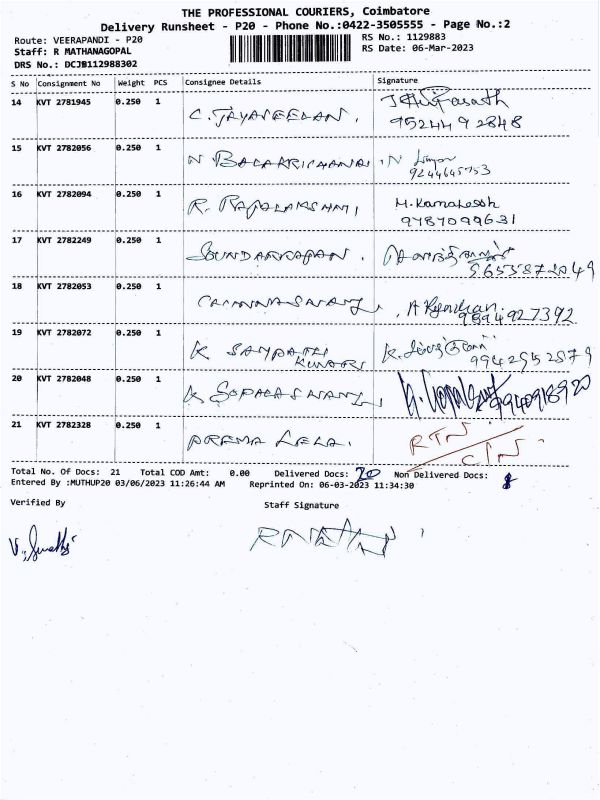 THE PROFESSIONAL COURIERS, Coimbatore
Delivery Runsheet - P20 - Phone No.:0422-3505555 - Page No.:2
Route: VEERAPANDI - P20 RS No.: 1129883
Staff: R MATHANAGOPAL RS Date: 06-Mar-2023
DRS No.: DCJB112988302
S No Consignment No Weight PCS Consignee Details Signature
14 KVT 2781945 0.250 1 C. JAYASEELAN.
9524492848
15 KVT 2782056 0.250 1 N BALAKRISHNAN N
9244645753
16 KVT 2782094 0.250 1 R. RAJALAKSHMI M. Kamalessh
9787099631
17 KVT 2782249 0.250 1 SOUNDARRAJAN.
18 KVT 2782053 0.250 1 CHINNASWAMY
9894927392
19 KVT 2782072 0.250 1 K SAMPATH KUMAR K.
9942952879
20 KVT 2782048 0.250 1 K GOPALSWAMY
9940918920
21 KVT 2782328 0.250 1 PREMA LELA. RTN
CTN
Total No. Of Docs: 21 Total COD Amt: 0.00 Delivered Docs: 20 Non Delivered Docs: 1
Entered By :MUTHUP20 03/06/2023 11:26:44 AM Reprinted On: 06-03-2023 11:34:30
Verified By Staff Signature